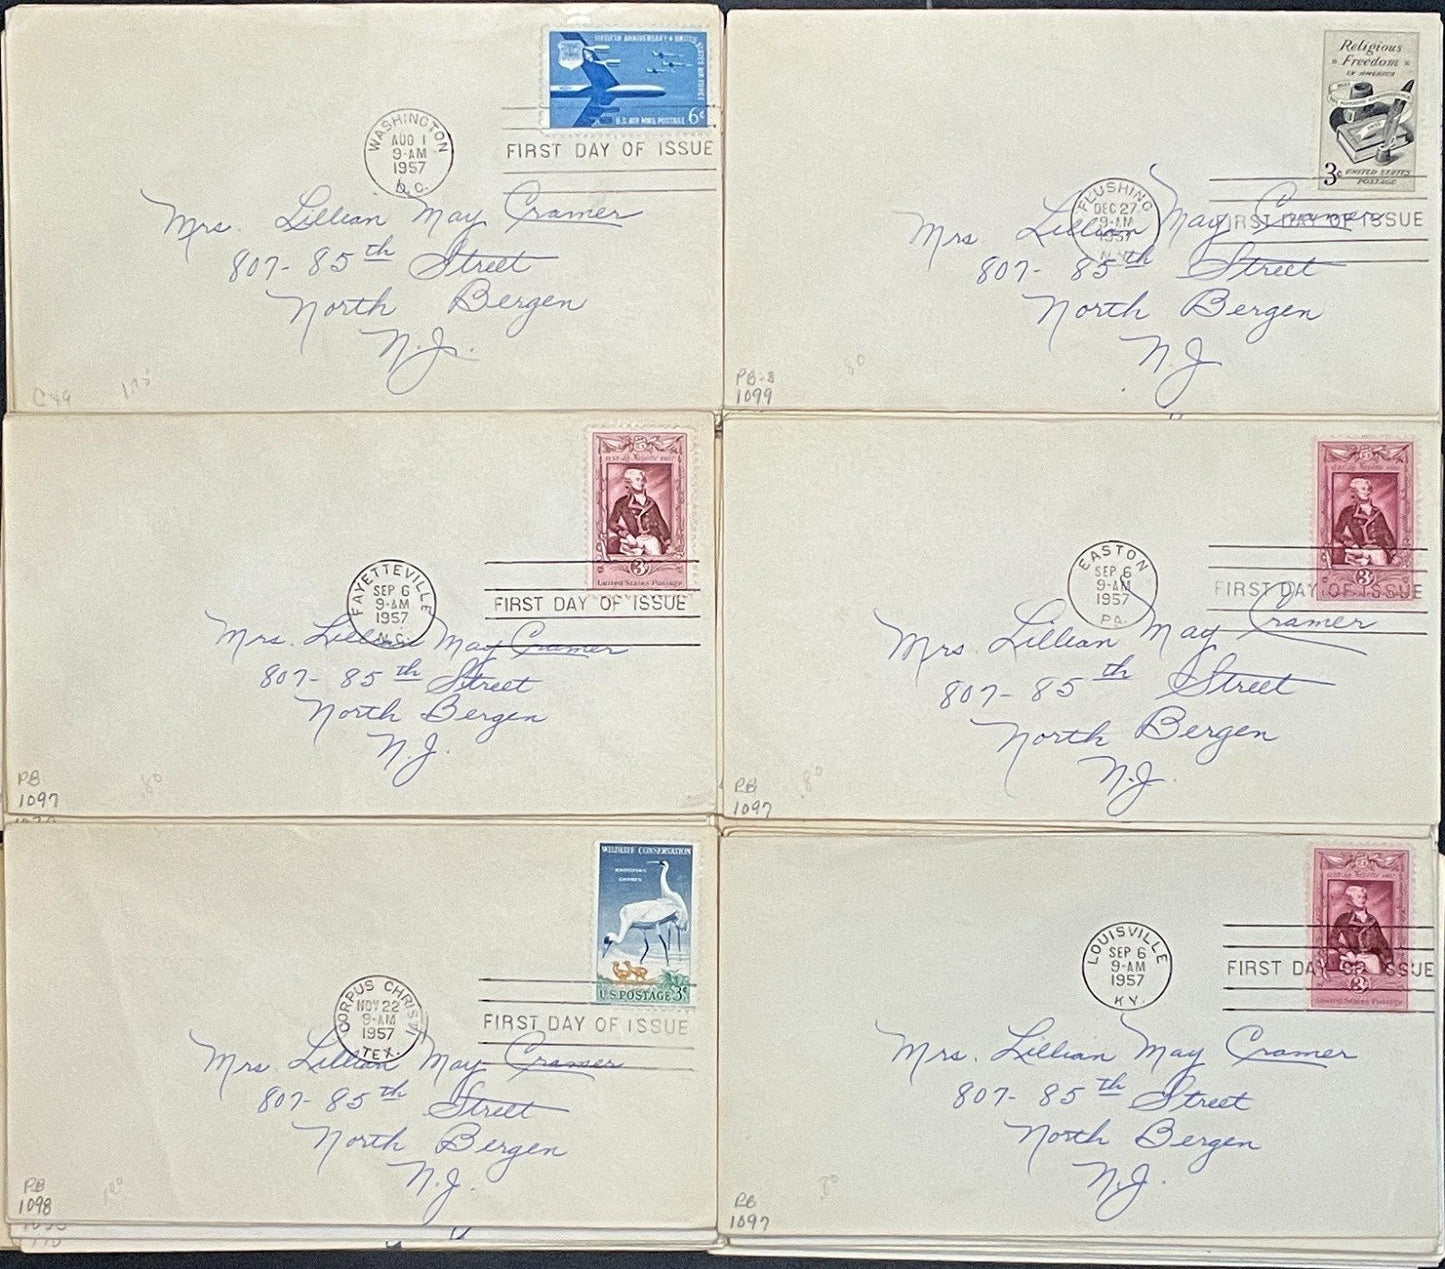 FIFTIETH ANNIVERSARY • UNITED STATES AIR FORCE
U.S. AIR MAIL POSTAGE 6¢
WASHINGTON
AUG 1
9-AM
1957
D.C.
FIRST DAY OF ISSUE
Mrs. Lillian May Cramer
807- 85th Street
North Bergen
N.J.
C49
175
Religious
Freedom
IN AMERICA
3¢ UNITED STATES
POSTAGE
FLUSHING
DEC 27
9-AM
1957
N.Y.
FIRST DAY OF ISSUE
Mrs Lillian May Cramer
807- 85th Street
North Bergen
N J
PB-8
1099
80
1757 La Fayette 1957
3¢
United States Postage
FAYETTEVILLE
SEP 6
9-AM
1957
N.C.
FIRST DAY OF ISSUE
Mrs. Lillian May Cramer
807- 85th Street
North Bergen
N.J.
PB
1097
80
1757 La Fayette 1957
3¢
EASTON
SEP 6
9-AM
1957
PA.
FIRST DAY OF ISSUE
Mrs. Lillian May Cramer
807- 85th Street
North Bergen
N.J.
PB
1097
80
WILDLIFE CONSERVATION
WHOOPING
CRANES
U.S. POSTAGE 3¢
CORPUS CHRISTI
NOV 22
9-AM
1957
TEX.
FIRST DAY OF ISSUE
Mrs. Lillian May Cramer
807- 85th Street
North Bergen
N.J.
PB
1098
1757 La Fayette 1957
3¢
United States Postage
LOUISVILLE
SEP 6
9-AM
1957
KY.
FIRST DAY OF ISSUE
Mrs. Lillian May Cramer
807- 85th Street
North Bergen
N.J.
PB
1097
80